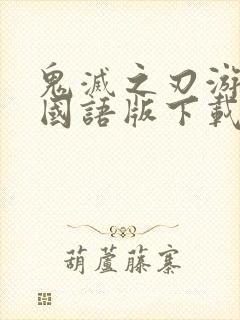 鬼滅之刃游
國語版下載
葫蘆藤寨